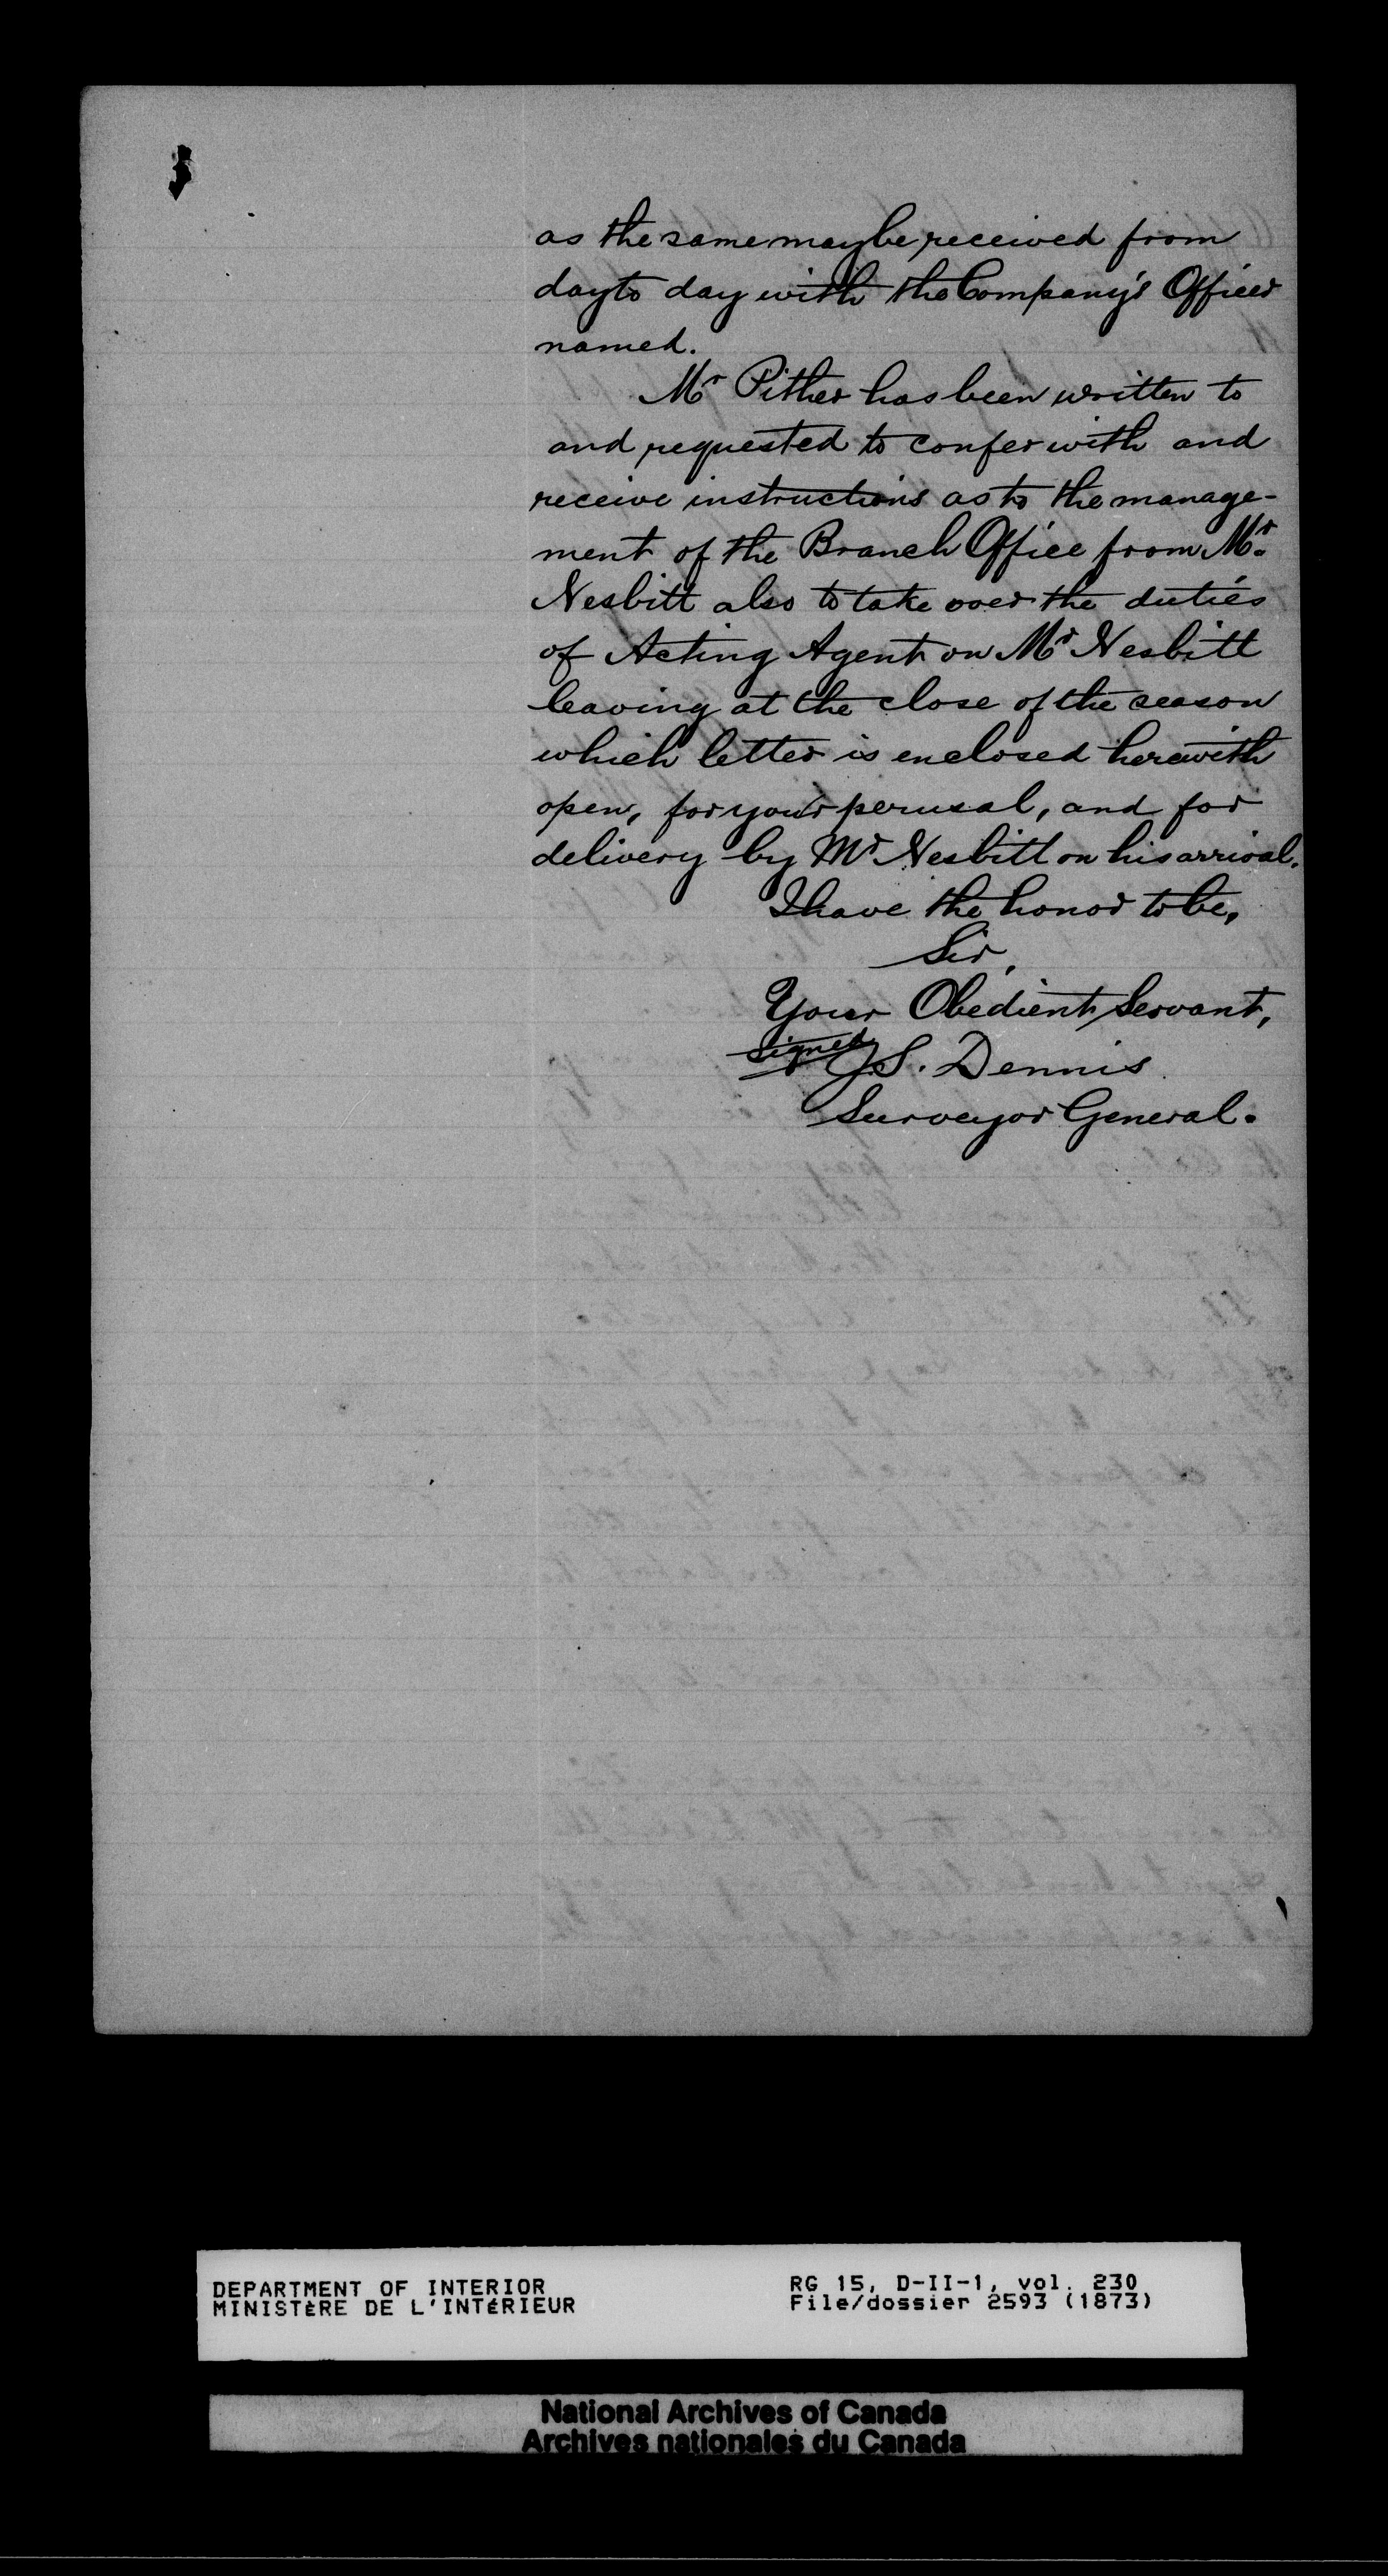 as the same may be received from
day to day with the Company's Officer
named.
Mr Pither has been written to
and requested to confer with and
receive instructions as to the manage-
ment of the Branch Office from Mr.
Nesbitt also to take over the duties
of Acting Agent on Mr Nesbitt
leaving at the close of the season
which letter is enclosed herewith
open, for your perusal, and for
delivery by Mr Nesbitt on his arrival.
I have the honor to be,
Sir,
Your Obedient Servant,
signed J.S. Dennis
Surveyor General.
DEPARTMENT OF INTERIOR
MINISTÈRE DE L'INTÉRIEUR
RG 15, D-II-1, vol. 230
File/dossier 2593 (1873)
National Archives of Canada
Archives nationales du Canada